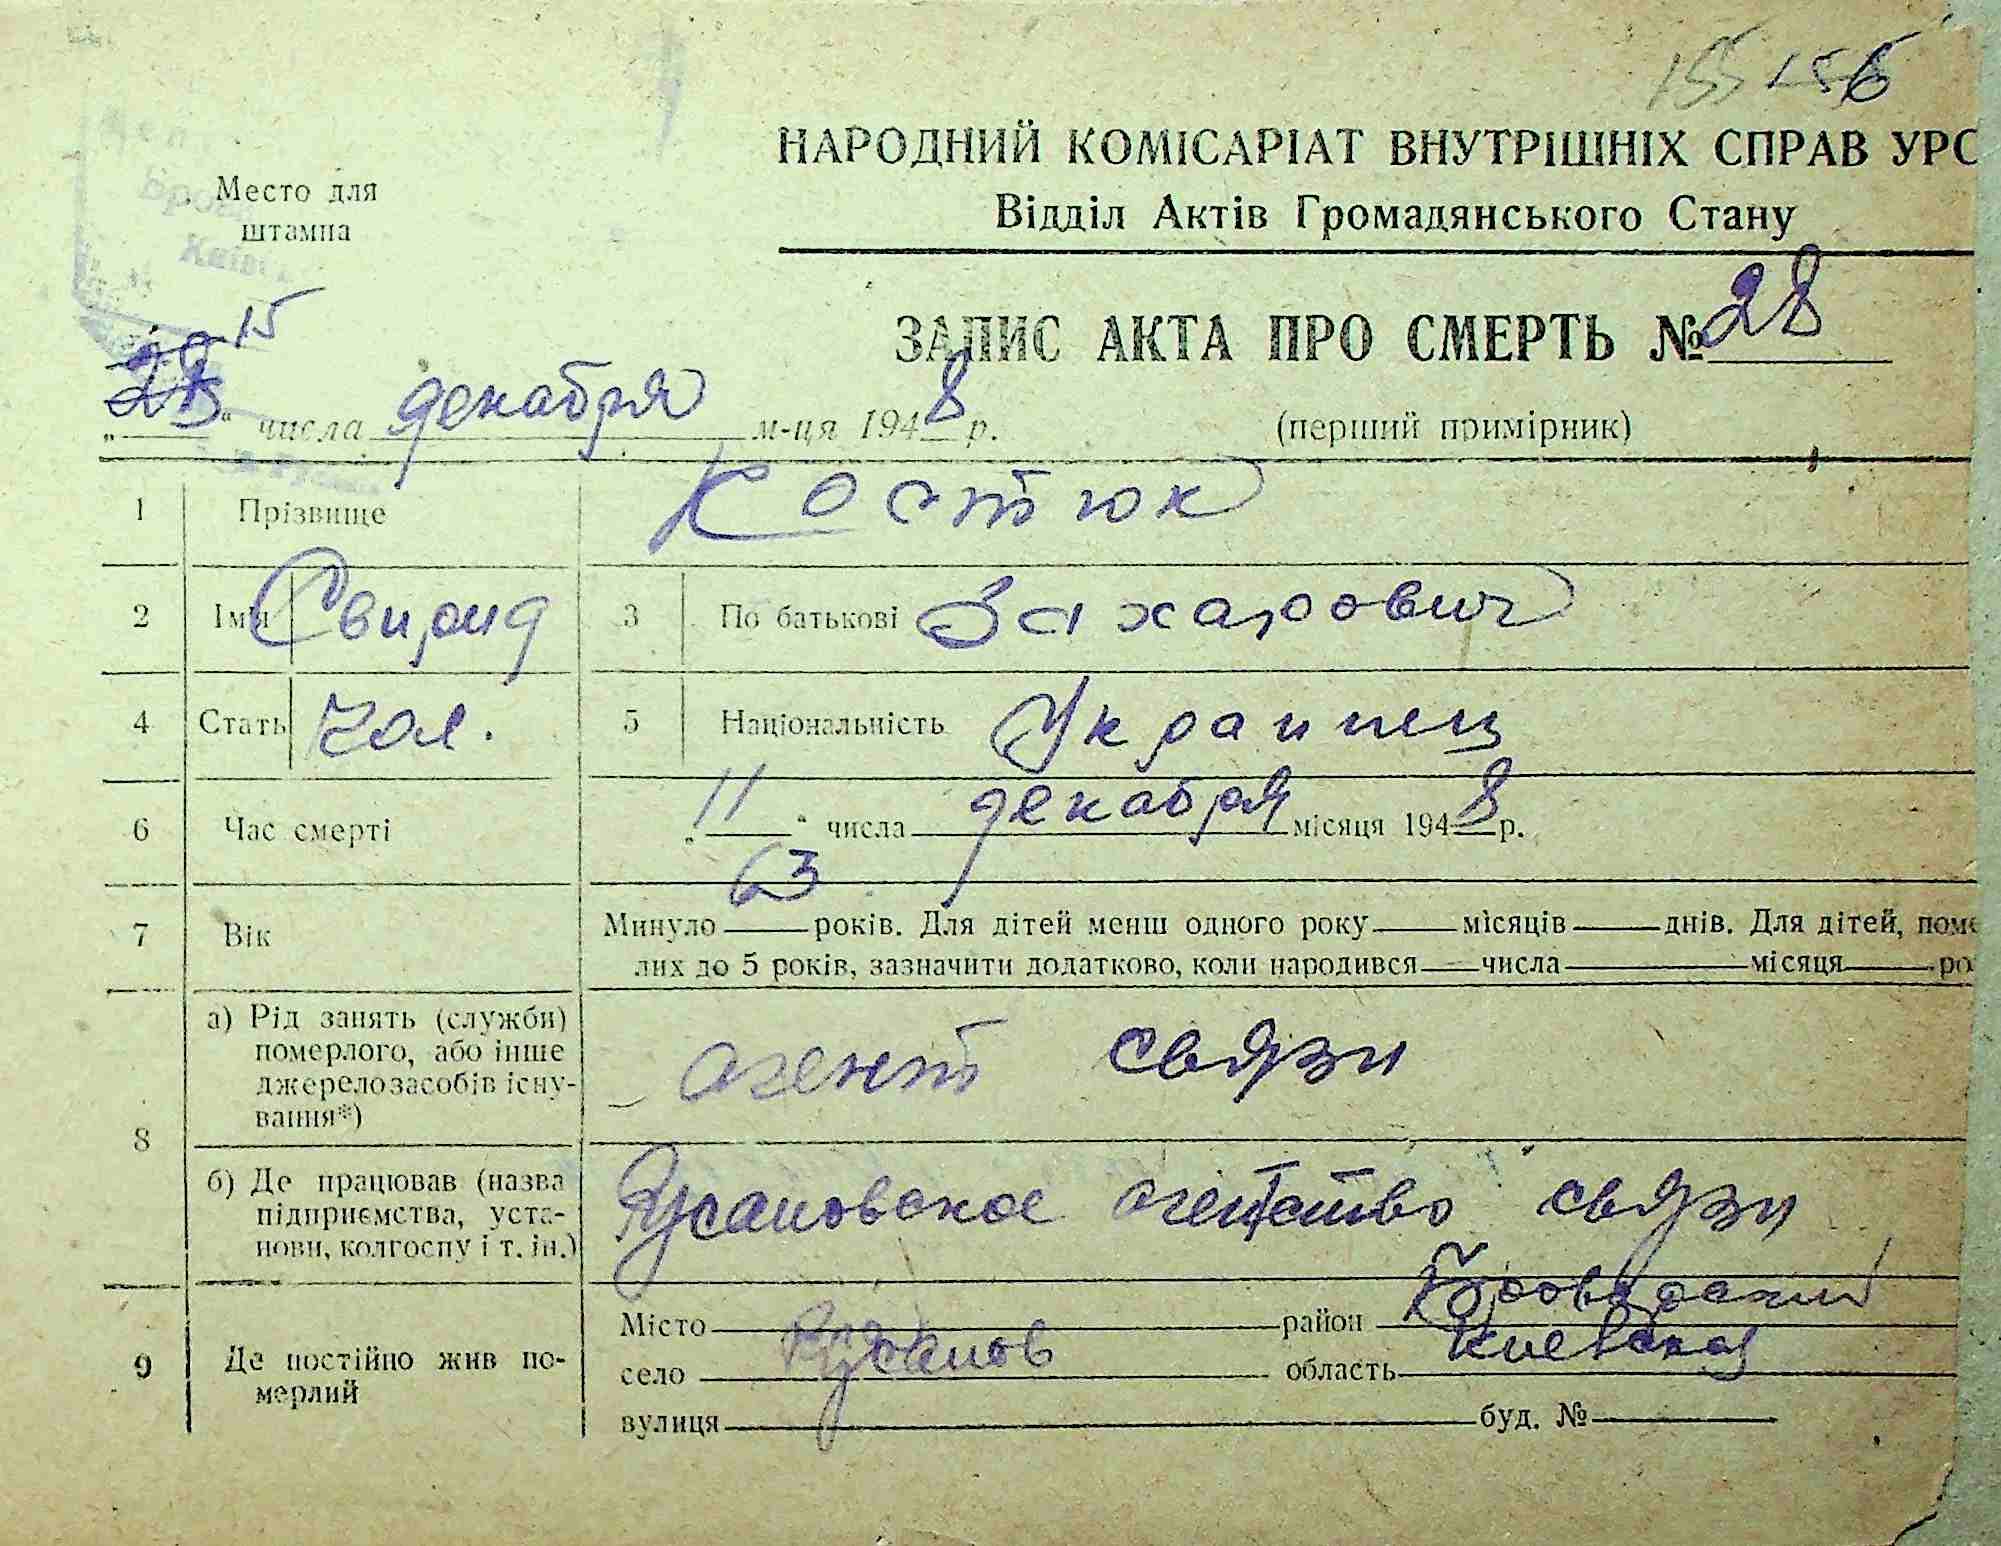 155 156
НАРОДНИЙ КОМІСАРІАТ ВНУТРІШНІХ СПРАВ УРС
Место для
штампа
Відділ Актів Громадянського Стану
ЗАПИС АКТА ПРО СМЕРТЬ № 28
15
„ “ числа декабря м-ця 1948 р. (перший примірник)
1 Прізвище Костюк
2 Імя Свирид 3 По батькові Захарович
4 Стать чол. 5 Національність Украинец
6 Час смерті „11“ числа декабря місяця 1948 р.
7 Вік Минуло 63 років. Для дітей менш одного року місяців днів. Для дітей, поме
лих до 5 років, зазначити додатково, коли народився числа місяця ро
8 а) Рід занять (служби)
померлого, або інше
джерело засобів існу-
вання*)
агент связи
б) Де працював (назва
підприємства, уста-
нови, колгоспу і т. ін.)
Русановское агентство связи
9 Де постійно жив по-
мерлий
Місто район Броварский
село Русанов область Киевская
вулиця буд. №